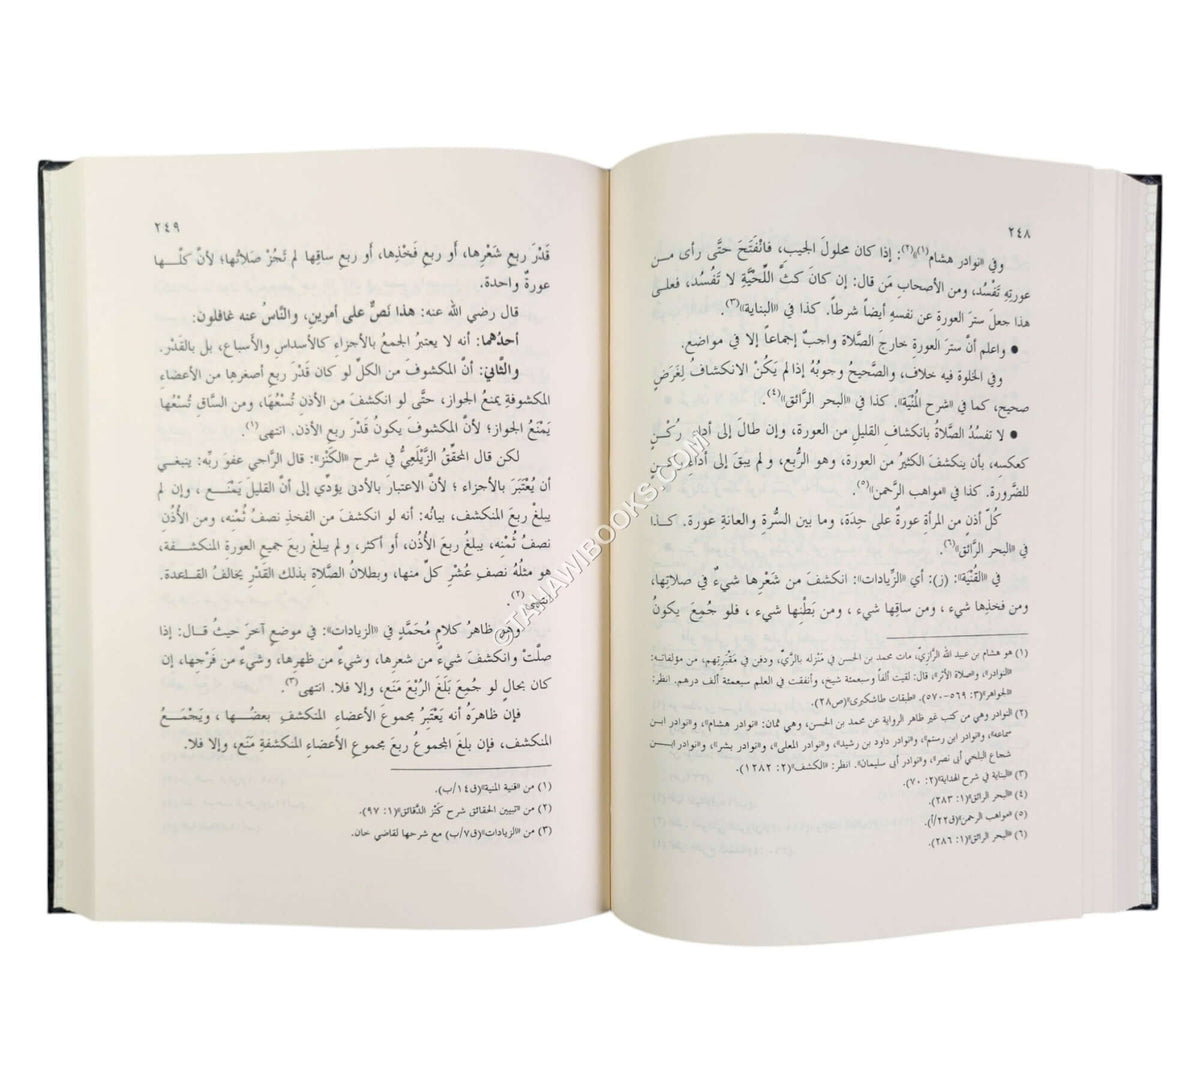 ٢٤٨
وفي «نوادر هشام(١)»(٢): إذا كان محلولَ الجيب، فانْفَتَحَ حتَّى رأى من
عورتِهِ تَفْسُد، ومن الأصحابِ مَن قال: إن كانَ كثَّ اللِّحْيَةِ لا تَفْسُد، فعلى
هذا جعلَ سترَ العورةِ عن نفسِهِ أيضاً شرطاً. كذا في «البناية»(٣).
● واعلم أنَّ سترَ العورةِ خارجَ الصَّلاةِ واجبٌ إجماعاً إلا في مواضع.
وفي الخلوة فيه خلاف، والصَّحيحُ وجوبُهُ إذا لم يَكُنْ الانكشافُ لِغَرَضٍ
صحيح، كما في «شرح المُنْيَة». كذا في «البحر الرَّائق»(٤).
● لا تفسُدُ الصَّلاةُ بانكشافِ القليلِ من العورة، وإن طالَ إلى أداءِ رُكْنٍ
كعكسِهِ، بأن ينكشفَ الكثيرُ من العورة، وهو الرُّبع، ولم يبقَ إلى أداءِ ركنٍ
للضَّرورة. كذا في «مواهب الرَّحمن»(٥).
كُلُّ أذنٍ من المرأةِ عورةٌ على حِدَة، وما بين السُّرةِ والعانةِ عورة. كذا
في «البحر الرَّائق»(٦).
في «القُنْيَة»: (ز): أي «الزِّيادات»: انكشفَ من شَعْرِها شيءٌ في صلاتِها،
ومن فخذِها شيء، ومن ساقِها شيء، ومن بَطْنِها شيء، فلو جُمِعَ يكونُ
(١) هو هشام بن عبيد الله الرَّازِيّ، مات محمد بن الحسن في منْزله بالرَّيّ، ودفن في مَقْبُرتِهم، من مؤلفاته:
«النوادر»، و«صلاة الأثر»، قال: لقيت ألفاً وسبعمئة شيخ، وأنفقت في العلم سبعمئة ألف درهم. انظر:
«الجواهر»(٣: ٥٦٩-٥٧٠). «طبقات طاشكبرى»(ص٢٨).
(٢) النوادر وهي من كتب غير ظاهر الرواية عن محمد بن الحسن، وهي ثمان: «نوادر هشام»، و«نوادر ابن
سماعة»، و«نوادر ابن رستم»، و«نوادر داود بن رشيد»، و«نوادر المعلى»، و«نوادر بشر»، و«نوادر ابن
شجاع البلخي أبى نصر»، و«نوادر أبى سليمان». انظر: «الكشف»(٢: ١٢٨٢).
(٣) «البناية في شرح الهداية»(٢: ٧٠).
(٤) «البحر الرائق»(١: ٢٨٣).
(٥) «مواهب الرحمن»(ق٢٢/أ).
(٦) «البحر الرائق»(١: ٢٨٦).
٢٤٩
قَدْرَ ربعِ شَعْرِها، أو ربعِ فَخْذِها، أو ربعِ ساقِها لم تَجُزْ صَلاتُها؛ لأنَّ كلَّها
عورةٌ واحدة.
قال رضي الله عنه: هذا نَصٌّ على أمرين، والنَّاسُ عنه غافلون:
أحدُهما: أنه لا يعتبرُ الجمعُ بالأجزاءِ كالأسداسِ والأسباع، بل بالقَدْر.
والثَّاني: أنَّ المكشوفَ من الكلِّ لو كان قَدْرَ ربعِ أصغرِها من الأعضاءِ
المكشوفةِ يمنعُ الجواز، حتَّى لو انكشفَ من الأذنِ تُسْعُهَا، ومن السَّاقِ تُسْعُها
يَمْنَعُ الجواز؛ لأنَّ المكشوفَ يكونُ قَدْرَ ربعِ الأذن. انتهى(١).
لكن قال المحقِّقُ الزَّيْلَعِيُّ في شرح «الكَنْز»: قال الرَّاجي عفوَ ربِّه: ينبغي
أن يُعْتَبَرَ بالأجزاء؛ لأنَّ الاعتبارَ بالأدنى يؤدِّي إلى أنَّ القليلَ يَمْنَع، وإن لم
يبلغْ ربعَ المنكشف، بيانُه: أنه لو انكشفَ من الفخذِ نصفُ ثُمْنِه، ومن الأُذُنِ
نصفُ ثُمْنِه، يبلغُ ربعَ الأُذُن، أو أكثر، ولم يبلغْ ربعَ جميعِ العورةِ المنكشفة،
هو مثلُهُ نصفِ عُشْرِ كلٍّ منها، وبطلانُ الصَّلاةِ بذلك القَدْرِ يخالفُ القاعدة.
انتهى(٢).
وهو ظاهرُ كلامِ مُحَمَّدٍ في «الزيادات»: في موضعٍ آخرَ حيثُ قال: إذا
صلَّتْ وانكشفَ شيءٌ من شعرِها، وشيءٌ من ظهرِها، وشيءٌ من فَرْجِها، إن
كان بحالٍ لو جُمِعَ بَلَغَ الرُبْعَ مَنَع، وإلا فلا. انتهى(٣).
فإن ظاهرَهُ أنه يَعْتَبِرُ بمجموعِ الأعضاءِ المنكشفِ بعضُها، ويَجْمَعُ
المنكشف، فإن بلغَ المجموعُ ربعَ مجموعِ الأعضاءِ المنكشفةِ مَنَع، وإلا فلا.
(١) من «قنية المنية»(ق١٤/ب).
(٢) من «تبيين الحقائق شرح كَنْز الدَّقائق»(١: ٩٧).
(٣) من «الزيادات»(ق٧/ب) مع شرحها لقاضي خان.
©TAHAWIBOOKS.COM